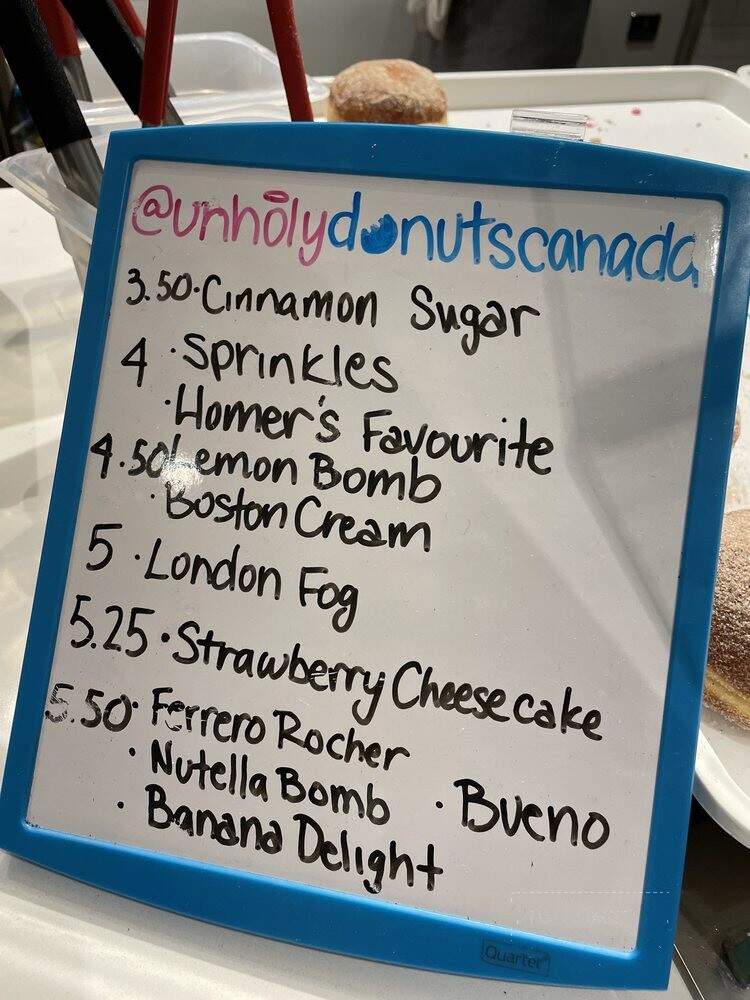 @unholydonutscanada
3.50·Cinnamon Sugar
4 ·Sprinkles
·Homer's Favourite
4.50 Lemon Bomb
·Boston Cream
5 ·London Fog
5.25·Strawberry Cheesecake
5.50·Ferrero Rocher
·Nutella Bomb ·Bueno
·Banana Delight
Quartet